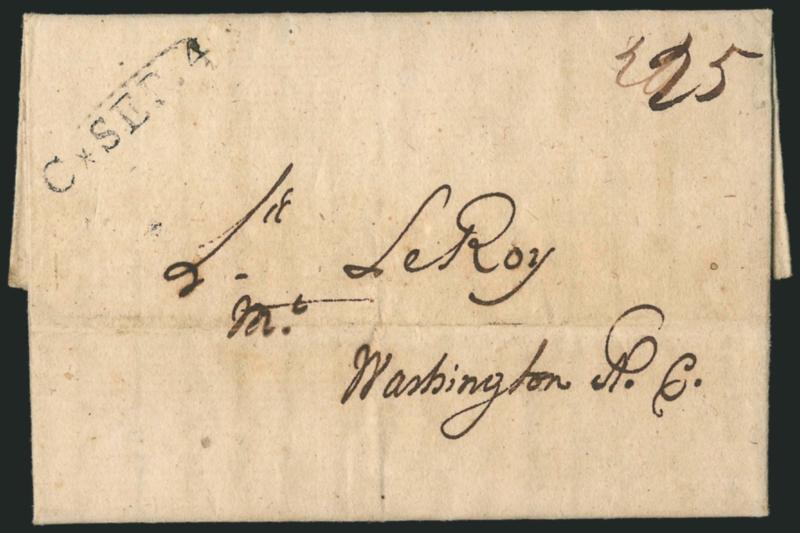 C*SEP.4
25
LeRoy
Mt.
Washington N. C.